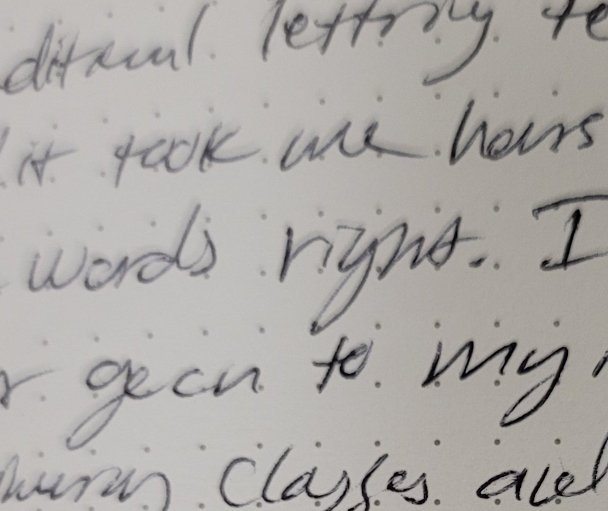 lettering te
it took me hours
words right. I
to my
classes and